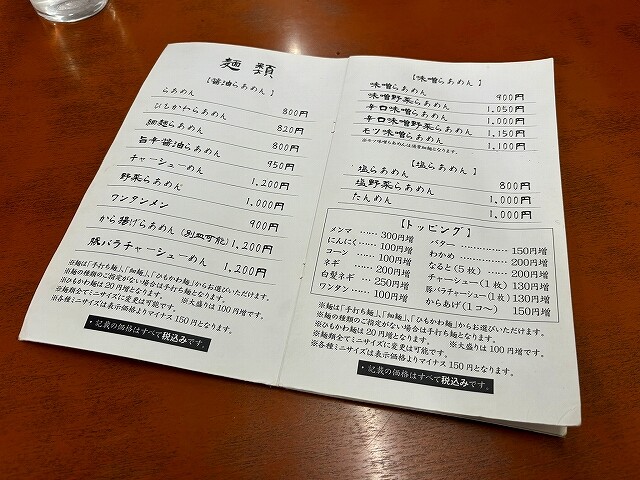 麺類
【醤油らぁめん】
らぁめん 800円
ひもかわらぁめん 820円
細麺らぁめん 800円
旨辛醤油らぁめん 950円
チャーシューめん 1,200円
野菜らぁめん 1,000円
ワンタンメン 900円
から揚げらぁめん(別皿可能) 1,200円
豚バラチャーシューめん 1,200円
※麺は「手打ち麺」、「細麺」、「ひもかわ麺」からお選びいただけます。
※麺の種類のご指定がない場合は手打ち麺となります。
※ひもかわ麺は20円増となります。 ※大盛りは100円増です。
※麺類全てミニサイズに変更は可能です。
※各種ミニサイズは表示価格よりマイナス150円となります。
・記載の価格はすべて税込みです。
【味噌らぁめん】
味噌らぁめん 900円
味噌野菜らぁめん 1,050円
辛口味噌らぁめん 1,000円
辛口味噌野菜らぁめん 1,150円
モツ味噌らぁめん 1,100円
【塩らぁめん】
塩らぁめん 800円
塩野菜らぁめん 1,000円
たんめん 1,000円
【トッピング】
メンマ …… 300円増
にんにく …… 100円増
コーン …… 100円増
ネギ …… 200円増
白髪ネギ …… 250円増
ワンタン …… 100円増
バター …… 150円増
わかめ …… 200円増
なると(5枚) …… 200円増
チャーシュー(1枚) 130円増
豚バラチャーシュー(1枚) 130円増
からあげ(1コ〜) 150円増
※麺は「手打ち麺」、「細麺」、「ひもかわ麺」からお選びいただけます。
※麺の種類のご指定がない場合は手打ち麺となります。
※ひもかわ麺は20円増となります。 ※大盛りは100円増です。
※麺類全てミニサイズに変更は可能です。
※各種ミニサイズは表示価格よりマイナス150円となります。
・記載の価格はすべて税込みです。